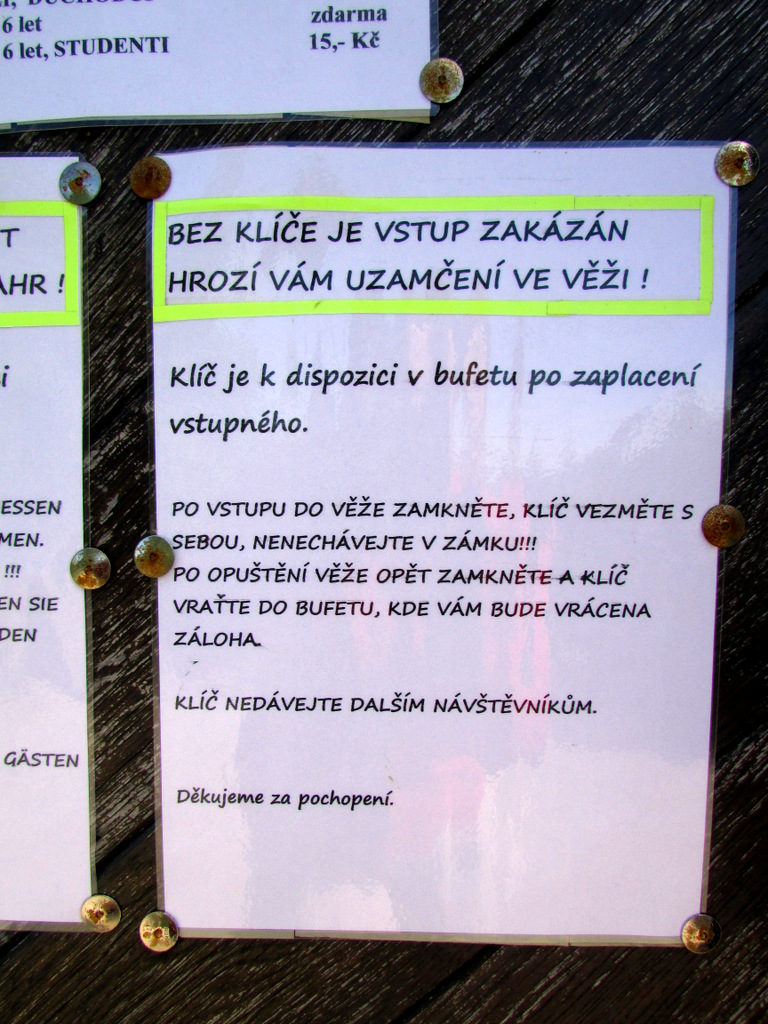 6 let zdarma
6 let, STUDENTI 15,- Kč
T
AHR !
i
ESSEN
MEN.
!!!
EN SIE
DEN
GÄSTEN
BEZ KLÍČE JE VSTUP ZAKÁZÁN
HROZÍ VÁM UZAMČENÍ VE VĚŽI !
Klíč je k dispozici v bufetu po zaplacení
vstupného.
PO VSTUPU DO VĚŽE ZAMKNĚTE, KLÍČ VEZMĚTE S
SEBOU, NENECHÁVEJTE V ZÁMKU!!!
PO OPUŠTĚNÍ VĚŽE OPĚT ZAMKNĚTE A KLÍČ
VRAŤTE DO BUFETU, KDE VÁM BUDE VRÁCENA
ZÁLOHA.
KLÍČ NEDÁVEJTE DALŠÍM NÁVŠTĚVNÍKŮM.
Děkujeme za pochopení.